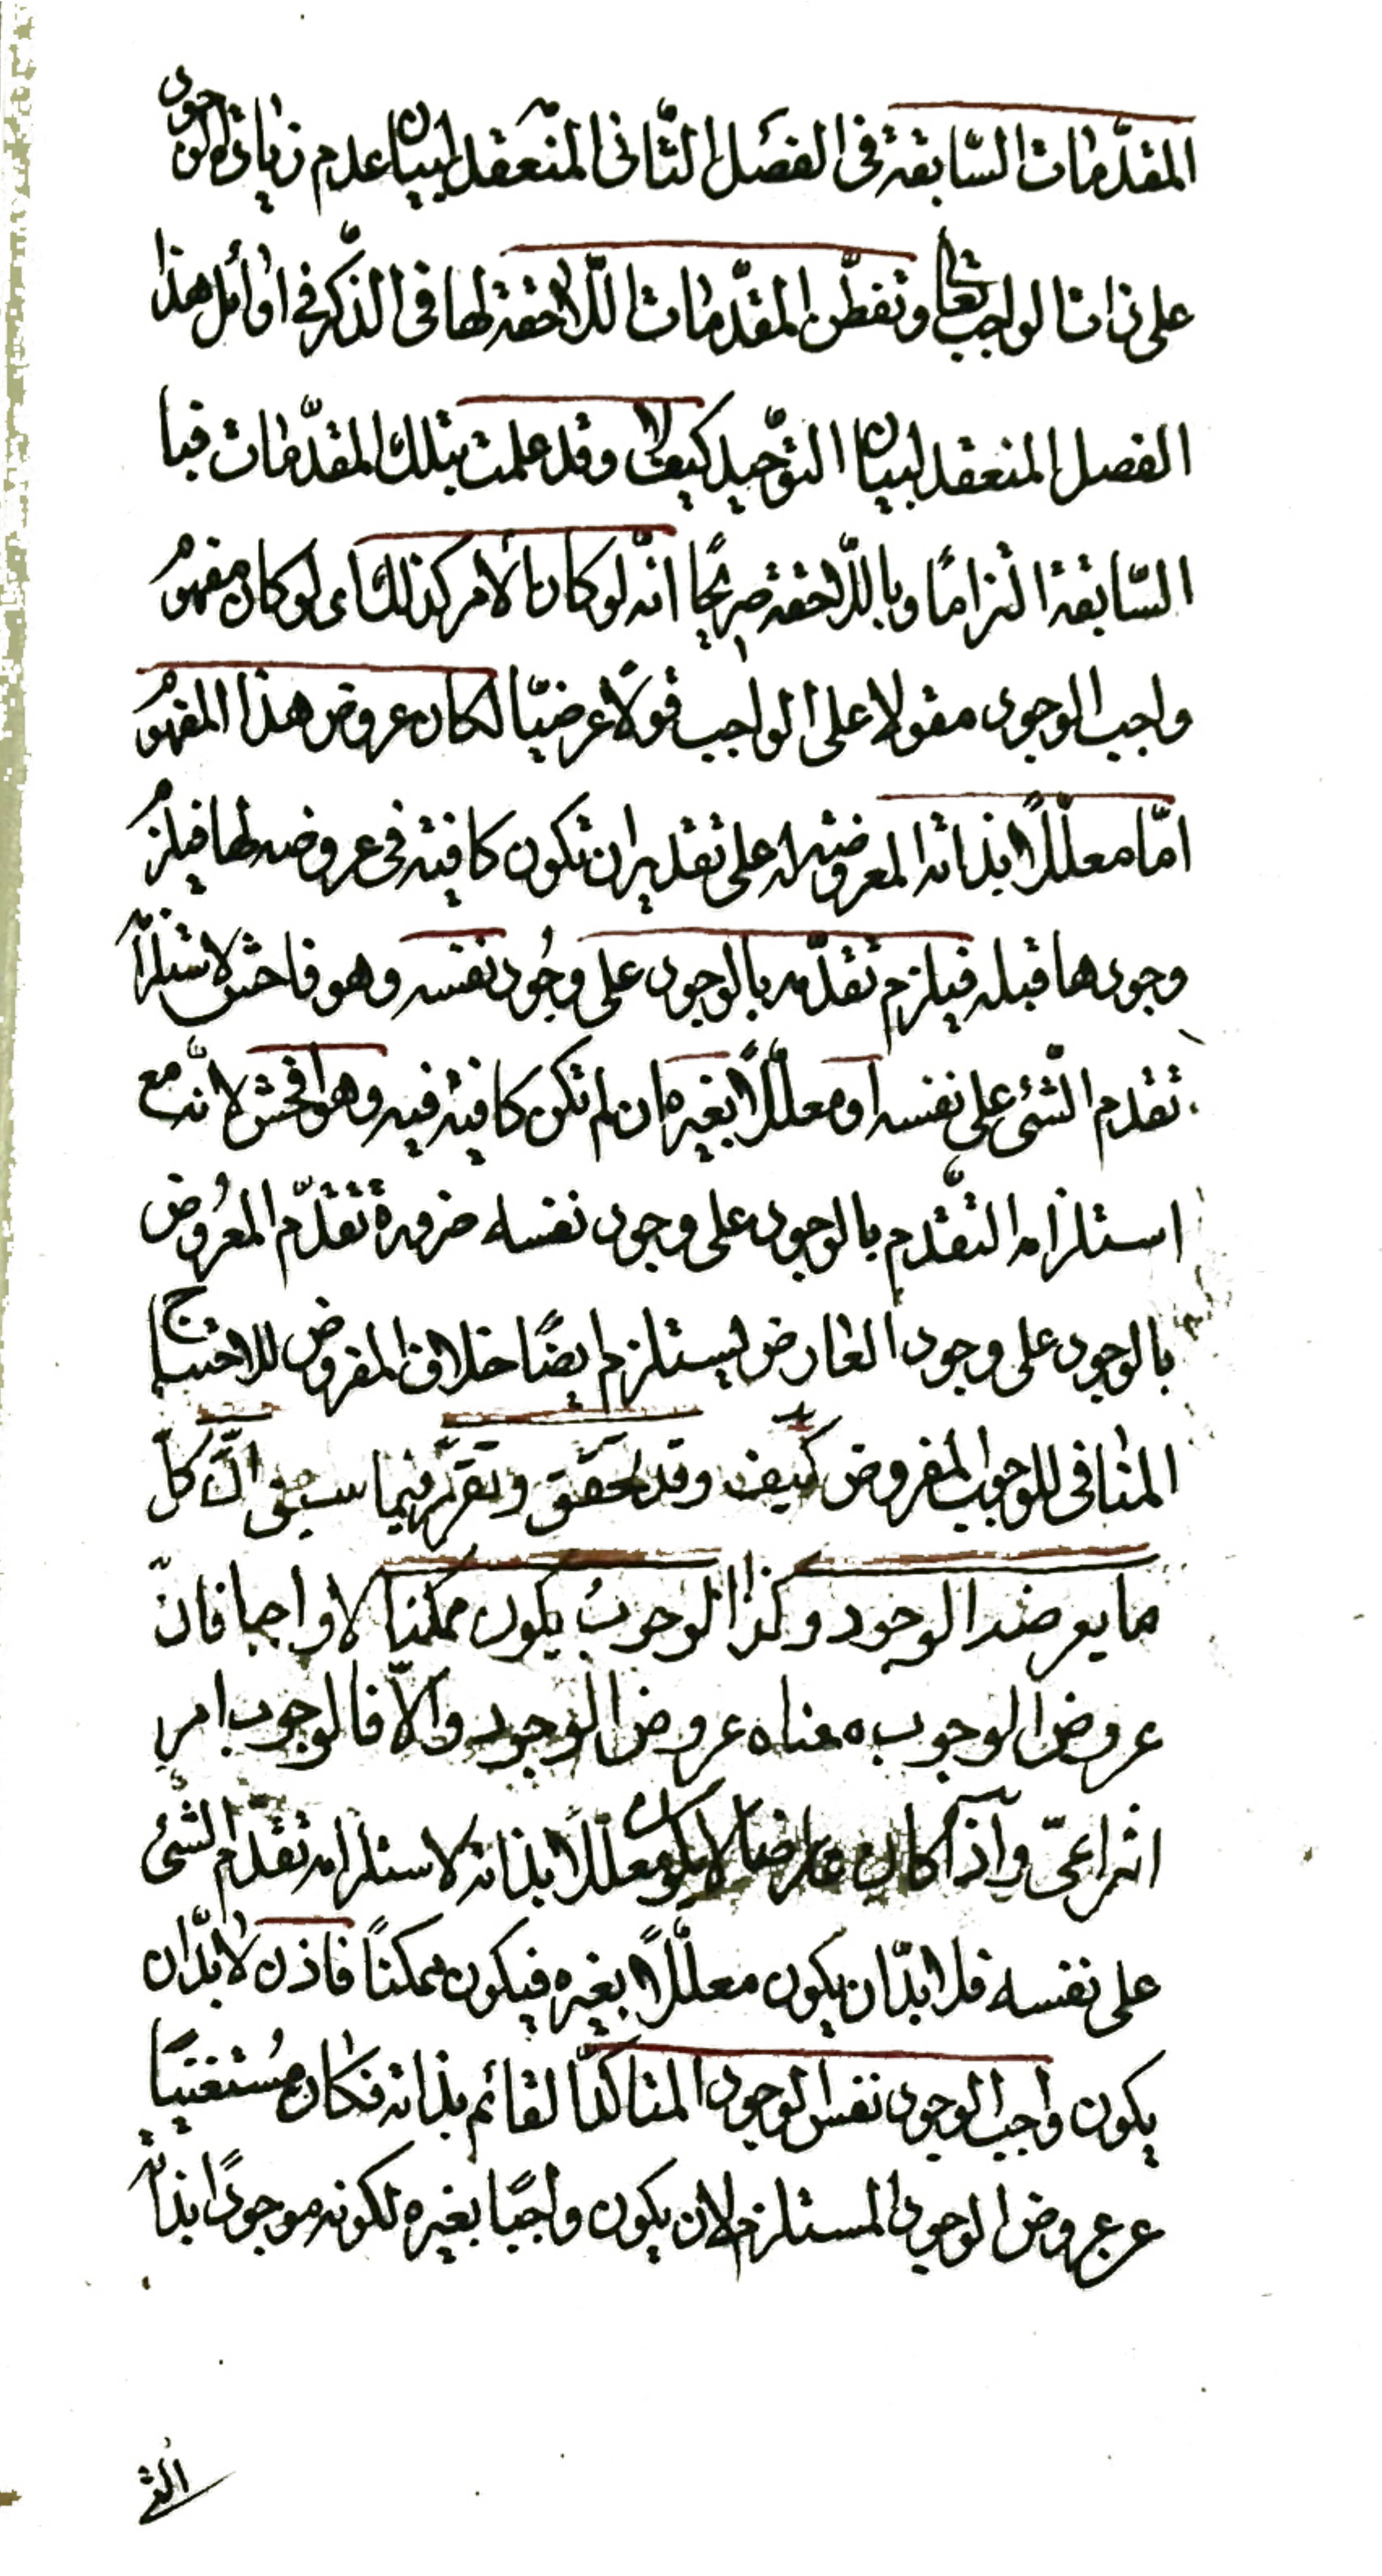 المقدّمات السّابقة فى الفصل الثّانى المنعقد لبيان عدم زيادة الوجود
على ذات الواجب تعا وتفطّن المقدّمات اللّاحقة لها فى الذّكر فى اوائل هذا
الفصل المنعقد لبيان التوّحيد كيف لا وقد علمت بتلك المقدّمات فبا
السّابقة التزامًا وباللّاحقة صريحًا انّه لو كان الامر كذلك اى لو كان مفهوم
واجب الوجود مقولا على الواجب قولًا عرضيّا لكان عروض هذا المفهوم
امّا معلّلًا بذاته المعروضة له على تقدير ان تكون كافية فى عروضه لها فيلزم
وجودها قبله فيلزم تقدّمه بالوجود على وجُود نفسه وهو فاحش لاستلزامه
تقدم الشّئ على نفسه او معلّلًا بغيره ان لم تكن كافية فيه وهو افحش لانّه مع
استلزامه التقّدم بالوجود على وجود نفسه ضرورة تقدّم المعرُوض
بالوجود على وجود العارض يستلزم ايضًا خلاف المفروض للاحتياج
المنافى للوجوب المفروض كيف وقد تحقّق وتقرّر فيما سبق انّ كلّ
ما يعرضه الوجود وكذا الوجوبُ يكون ممكنا لا واجبا فانّ
عروض الوجوب معناه عروض الوجود والّا فالوجوب امر
انتزاعىّ واذا كان عارضا لا يكون معلّلًا بذاته لاستلزامه تقدّم الشّئ
على نفسه فلا بدّ ان يكون معلّلًا بغيره فيكون ممكنًا فاذن لا بدّ ان
يكون واجب الوجود نفس الوجود المتاكّد القائم بذاته فكان مُستغنيًا
عن عروض الوجود المستلزم لان يكون واجبًا بغيره لكونه موجودًا بذاته